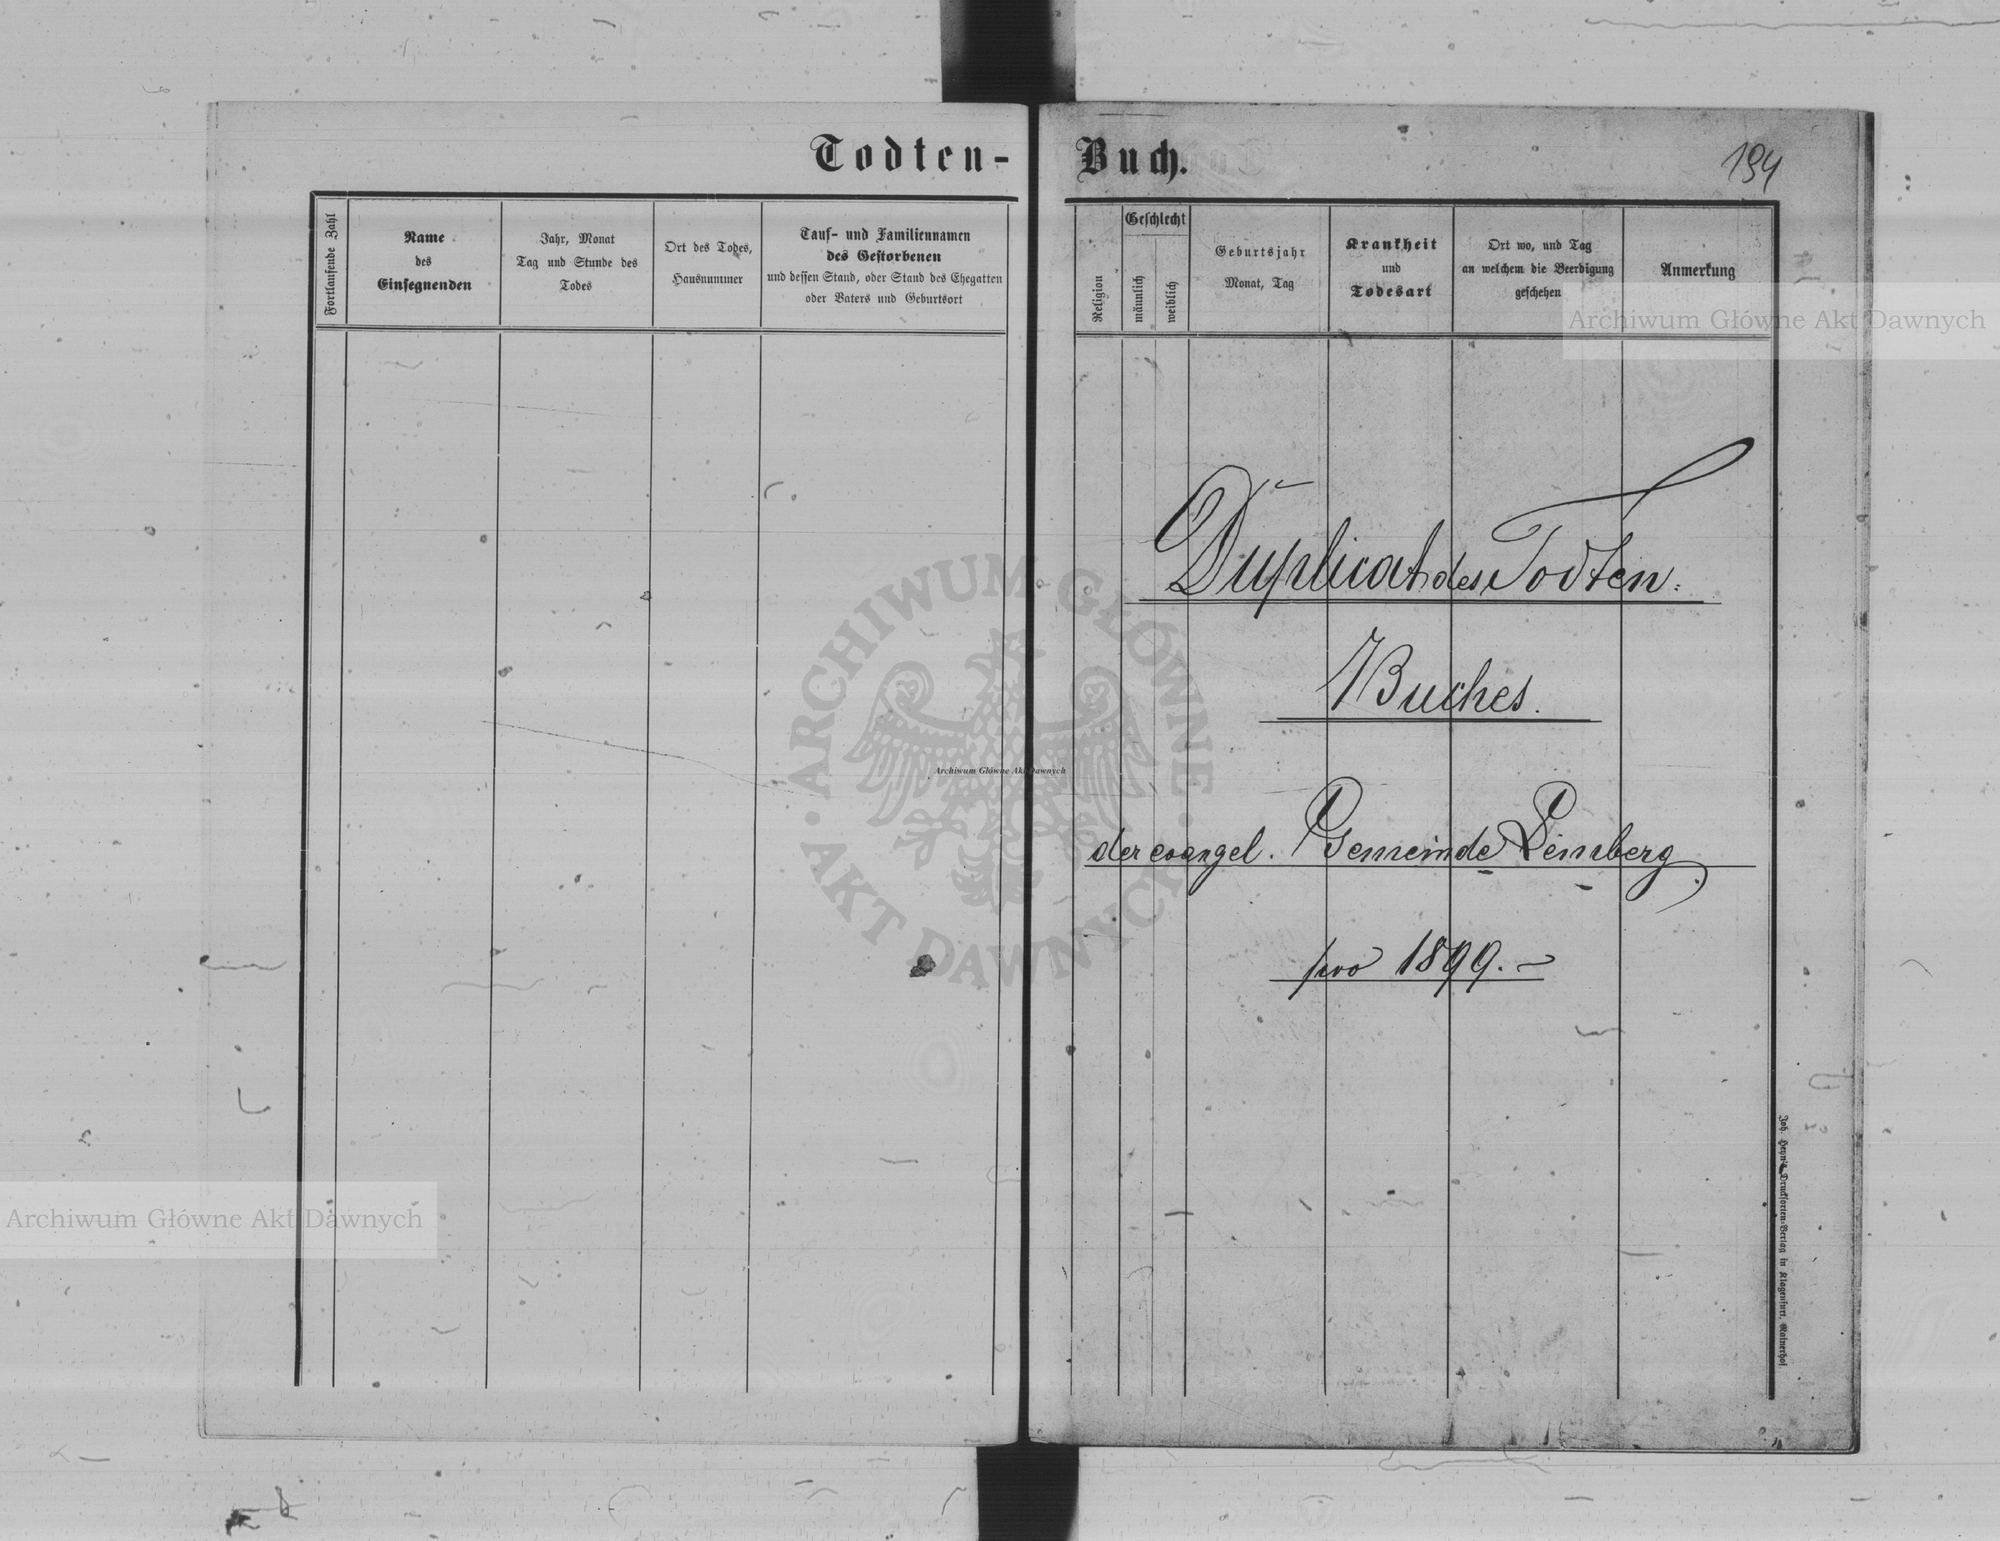 Todten-
Fortlaufende Zahl
Name
des
Einsegnenden
Jahr, Monat
Tag und Stunde des
Todes
Ort des Todes,
Hausnummer
Tauf- und Familiennamen
des Gestorbenen
und dessen Stand, oder Stand des Ehegatten
oder Vaters und Geburtsort
Buch.
194
Religion
Geschlecht
männlich
weiblich
Geburtsjahr
Monat, Tag
Krankheit
und
Todesart
Ort wo, und Tag
an welchem die Beerdigung
geschehen
Anmerkung
Duplicat des Todten-
Buches.
der evangel. Gemeinde Lemberg
pro 1899.-
Joh. Heyn's Drucksorten-Verlag in Klagenfurt, Rainerhof.
Archiwum Główne Akt Dawnych
ARCHIWUM GŁÓWNE
AKT DAWNYCH
Archiwum Główne Akt Dawnych
Archiwum Główne Akt Dawnych